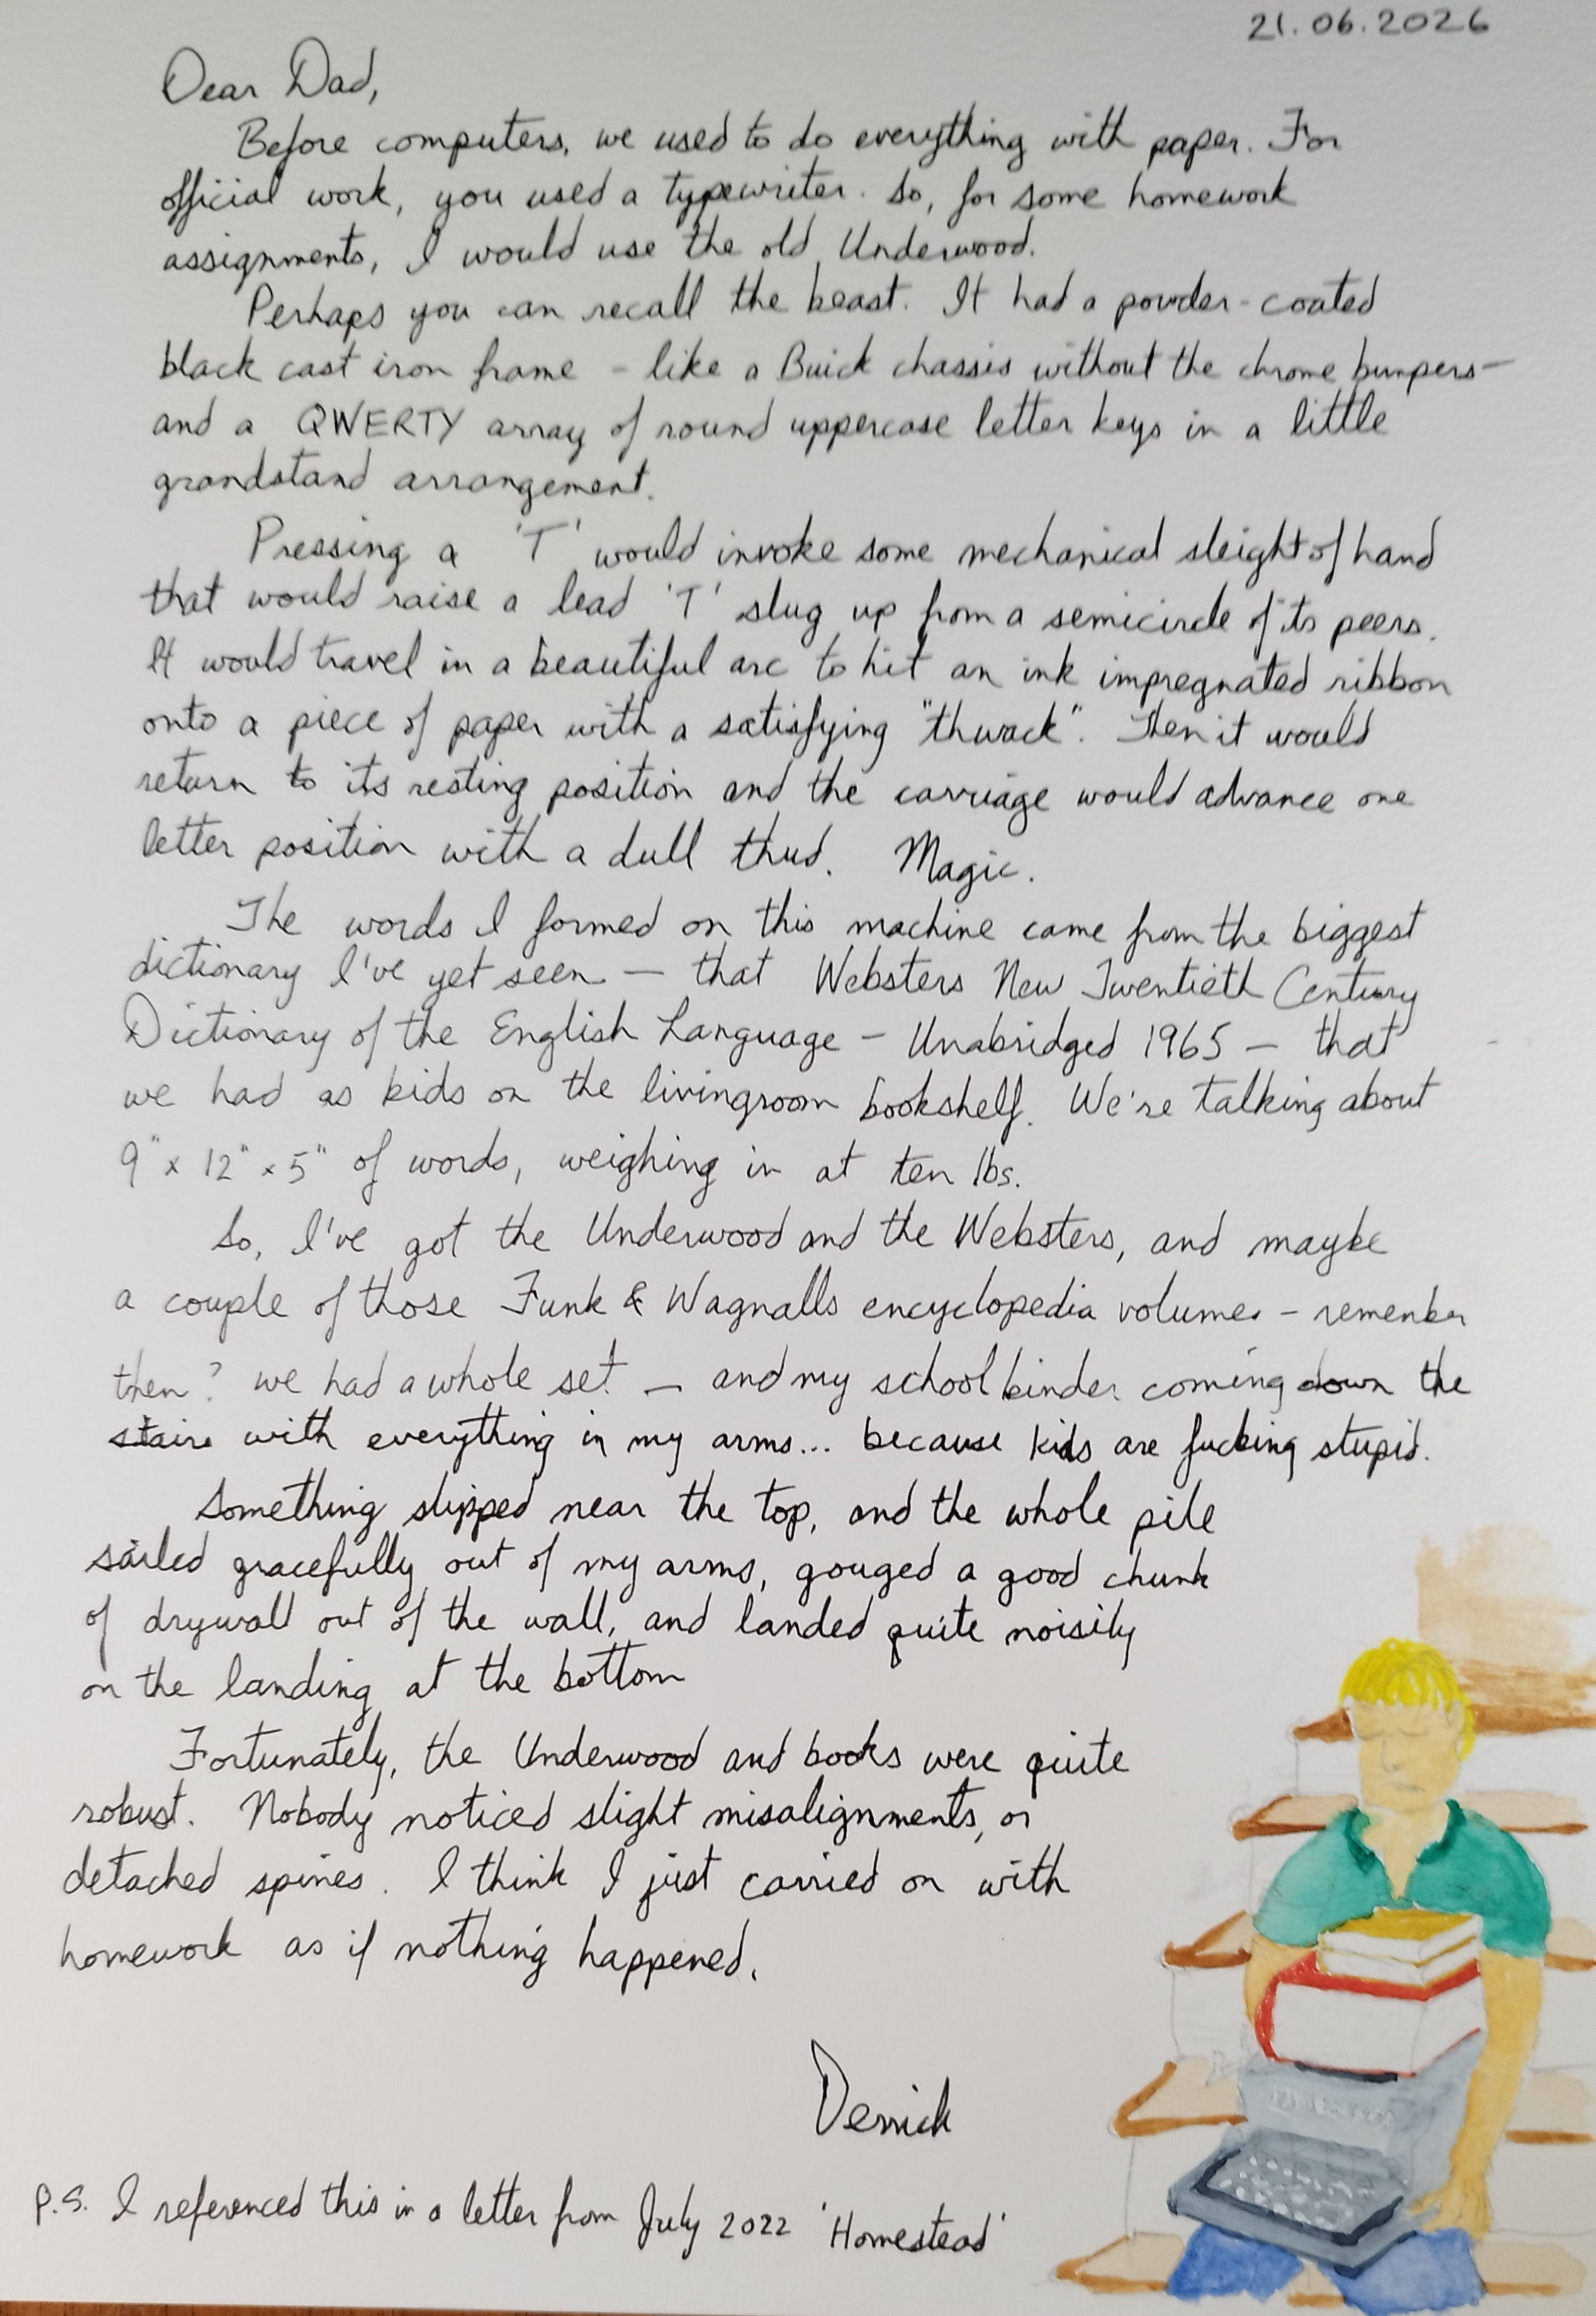 21.06.2026
Dear Dad,
Before computers, we used to do everything with paper. For
official work, you used a typewriter. So, for some homework
assignments, I would use the old Underwood.
Perhaps you can recall the beast. It had a powder-coated
black cast iron frame - like a Buick chassis without the chrome bumpers-
and a QWERTY array of round uppercase letter keys in a little
grandstand arrangement.
Pressing a 'T' would invoke some mechanical sleight of hand
that would raise a lead 'T' slug up from a semicircle of its peers.
It would travel in a beautiful arc to hit an ink impregnated ribbon
onto a piece of paper with a satisfying "thwack". Then it would
return to its resting position and the carriage would advance one
letter position with a dull thud. Magic.
The words I formed on this machine came from the biggest
dictionary I've yet seen — that Websters New Twentieth Century
Dictionary of the English Language - Unabridged 1965 — that
we had as kids on the livingroom bookshelf. We're talking about
9" x 12" x 5" of words, weighing in at ten lbs.
So, I've got the Underwood and the Websters, and maybe
a couple of those Funk & Wagnalls encyclopedia volumes - remember
then? we had a whole set — and my school binder coming down the
stairs with everything in my arms... because kids are fucking stupid.
Something slipped near the top, and the whole pile
sailed gracefully out of my arms, gouged a good chunk
of drywall out of the wall, and landed quite noisily
on the landing at the bottom
Fortunately, the Underwood and books were quite
robust. Nobody noticed slight misalignments, or
detached spines. I think I just carried on with
homework as if nothing happened.
Derrick
P.S. I referenced this in a letter from July 2022 'Homestead'